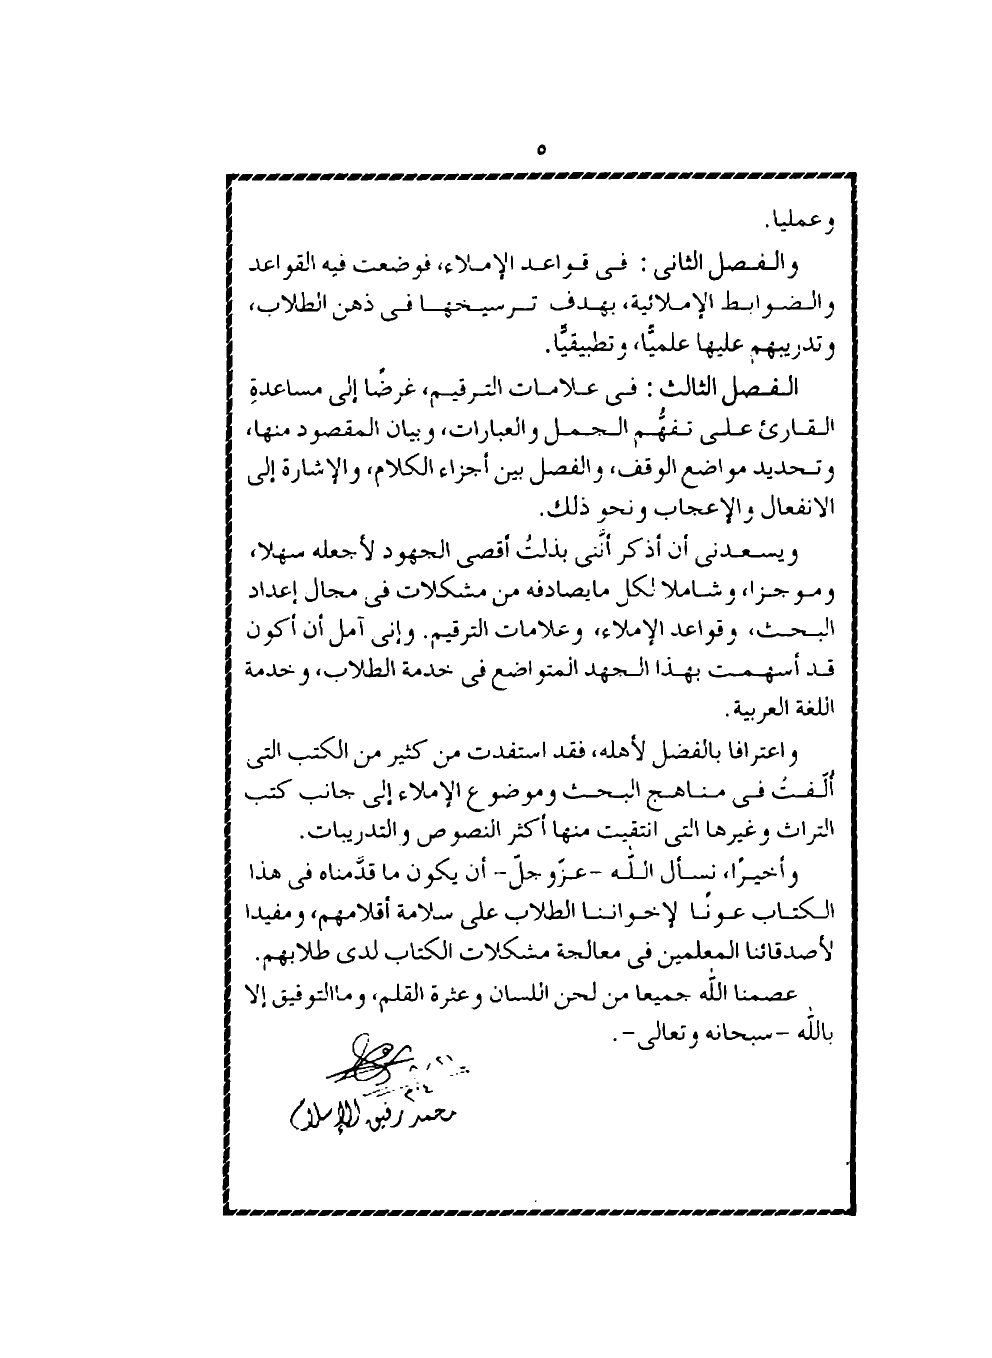 ٥
وعمليا.
والفصل الثانى : فى قواعد الإملاء، فوضعت فيه القواعد
والضوابط الإملائية، بهدف ترسيخها فى ذهن الطلاب،
وتدريبهم عليها علميًّا، وتطبيقيًّا.
الفصل الثالث : فى علامات الترقيم، غرضًا إلى مساعدةِ
القارئ على تفهُّم الجمل والعبارات، وبيان المقصود منها،
وتحديد مواضع الوقف، والفصل بين أجزاء الكلام، والإشارة إلى
الانفعال والإعجاب ونحو ذلك.
ويسعدنى أن أذكر أنَّنى بذلتُ أقصى الجهود لأجعله سهلا،
وموجزا، وشاملا لكل مايصادفه من مشكلات فى مجال إعداد
البحث، وقواعد الإملاء، وعلامات الترقيم. وإنى آمل أن أكون
قد أسهمت بهذا الجهد المتواضع فى خدمة الطلاب، وخدمة
اللغة العربية.
واعترافا بالفضل لأهله، فقد استفدت من كثير من الكتب التى
ألّفتُ فى مناهج البحث وموضوع الإملاء إلى جانب كتب
التراث وغيرها التى انتقيت منها أكثر النصوص والتدريبات.
وأخيرًا، نسأل اللّه -عزّوجلّ- أن يكون ما قدَّمناه فى هذا
الكتاب عونًا لإخواننا الطلاب على سلامة أقلامهم، ومفيدا
لأصدقائنا المعلمين فى معالجة مشكلات الكتاب لدى طلابهم.
عصمنا اللّه جميعا من لحن اللسان وعثرة القلم، وماالتوفيق إلا
باللّه -سبحانه وتعالى-.
محمد رفيق الإسلام